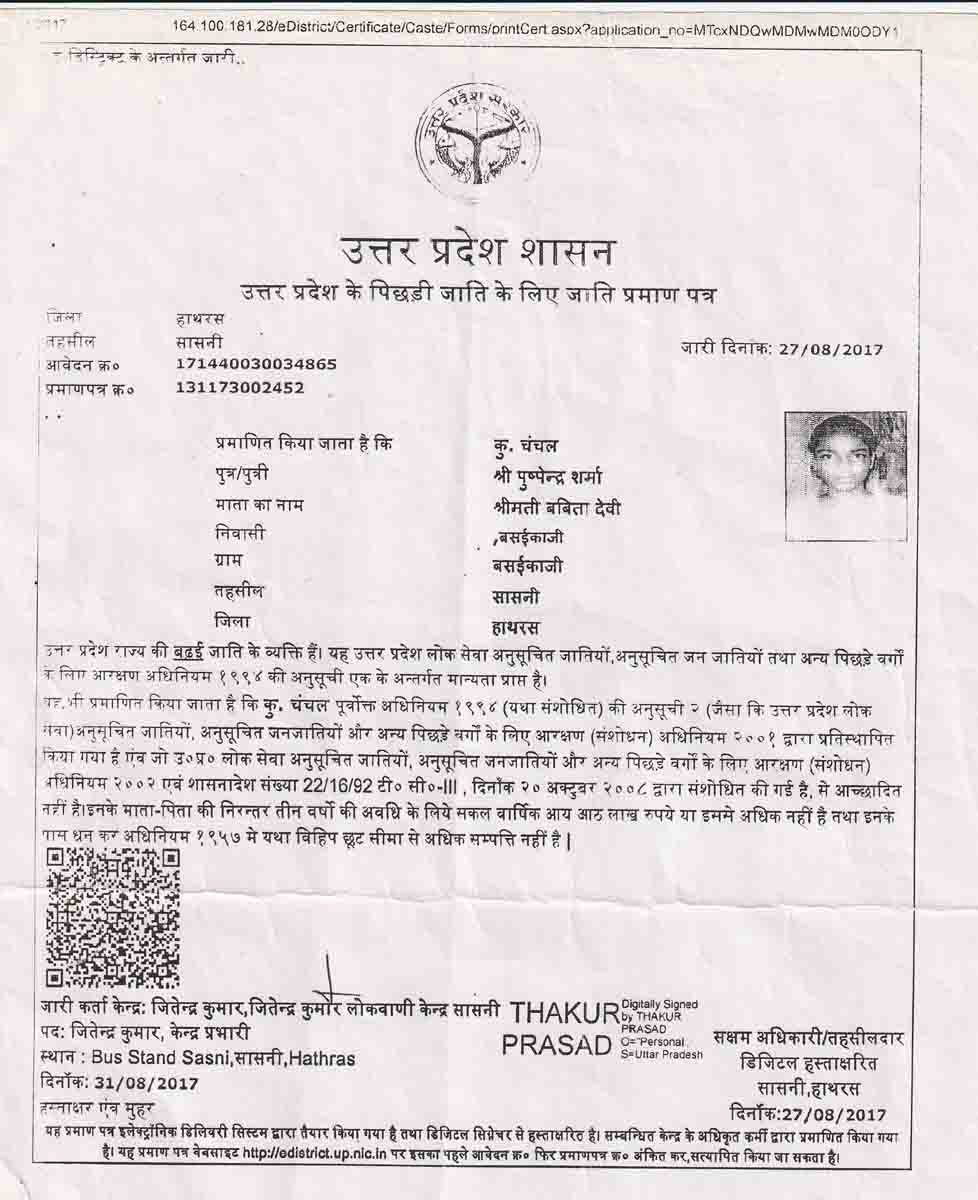 164.100.181.28/eDistrict/Certificate/Caste/Forms/printCert.aspx?application_no=MTcxNDQwMDMwMDM0ODY1
डिस्ट्रिक्ट के अन्तर्गत जारी..
उत्तर प्रदेश सरकार
उत्तर प्रदेश शासन
उत्तर प्रदेश के पिछड़ी जाति के लिए जाति प्रमाण पत्र
जिला हाथरस
तहसील सासनी
जारी दिनाक: 27/08/2017
आवेदन क्र० 171440030034865
प्रमाणपत्र क्र० 131173002452
प्रमाणित किया जाता है कि कु. चंचल
पुत्र/पुत्री श्री पुष्पेन्द्र शर्मा
माता का नाम श्रीमती बबिता देवी
निवासी ,बसईकाजी
ग्राम बसईकाजी
तहसील सासनी
जिला हाथरस
उत्तर प्रदेश राज्य की बढई जाति के व्यक्ति हैं। यह उत्तर प्रदेश लोक सेवा अनुसूचित जातियों,अनुसूचित जन जातियों तथा अन्य पिछड़े वर्गों
के लिए आरक्षण अधिनियम १९९४ की अनुसूची एक के अन्तर्गत मान्यता प्राप्त है।
यह भी प्रमाणित किया जाता है कि कु. चंचल पूर्वोक्त अधिनियम १९९४ (यथा संशोधित) की अनुसूची २ (जैसा कि उत्तर प्रदेश लोक
सेवा)अनुसूचित जातियों, अनुसूचित जनजातियों और अन्य पिछड़े वर्गों के लिए आरक्षण (संशोधन) अधिनियम २००१ द्वारा प्रतिस्थापित
किया गया है एंव जो उ०प्र० लोक सेवा अनुसूचित जातियों, अनुसूचित जनजातियों और अन्य पिछड़े वर्गों के लिए आरक्षण (संशोधन)
अधिनियम २००२ एवं शासनादेश संख्या 22/16/92 टी० सी०-III , दिनाँक २० अक्टुबर २००८ द्वारा संशोधित की गई है, से आच्छादित
नहीं है।इनके माता-पिता की निरन्तर तीन वर्षो की अवधि के लिये सकल वार्षिक आय आठ लाख रुपये या इससे अधिक नहीं है तथा इनके
पास धन कर अधिनियम १९५७ मे यथा विहिप छूट सीमा से अधिक सम्पत्ति नहीं है |
जारी कर्ता केन्द्र: जितेन्द्र कुमार,जितेन्द्र कुमार लोकवाणी केन्द्र सासनी
पद: जितेन्द्र कुमार, केन्द्र प्रभारी
स्थान : Bus Stand Sasni,सासनी,Hathras
दिनाँक: 31/08/2017
हस्ताक्षर एंव मुहर
THAKUR
PRASAD
Digitally Signed
by THAKUR
PRASAD
O=Personal
S=Uttar Pradesh
सक्षम अधिकारी/तहसीलदार
डिजिटल हस्ताक्षरित
सासनी,हाथरस
दिनाँक:27/08/2017
यह प्रमाण पत्र इलेक्ट्रॉनिक डिलिवरी सिस्टम द्वारा तैयार किया गया है तथा डिजिटल सिग्नेचर से हस्ताक्षरित है। सम्बन्धित केन्द्र के अधिकृत कर्मी द्वारा प्रमाणित किया गया
है। यह प्रमाण पत्र वेबसाइट http://edistrict.up.nic.in पर इसका पहले आवेदन क्र० फिर प्रमाणपत्र क्र० अंकित कर,सत्यापित किया जा सकता है।